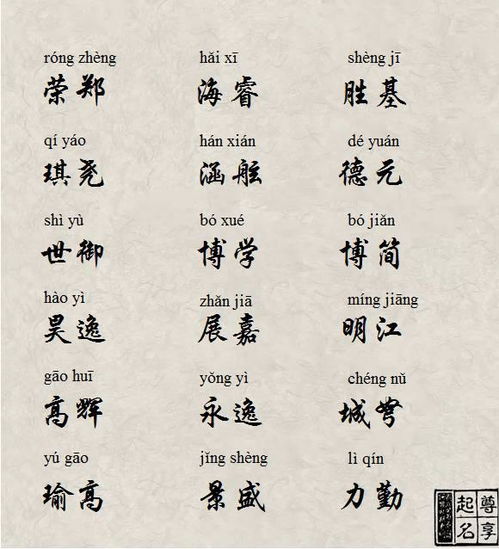 róng zhèng hǎi xī shèng jī
荣郑 海睿 胜基
qí yáo hán xián dé yuán
琪尧 涵舷 德元
shì yù bó xué bó jiǎn
世御 博学 博简
hào yì zhǎn jiā míng jiāng
昊逸 展嘉 明江
gāo huī yǒng yì chéng nǔ
高辉 永逸 城弩
yú gāo jǐng shèng lì qín
瑜高 景盛 力勤
尊享
起名